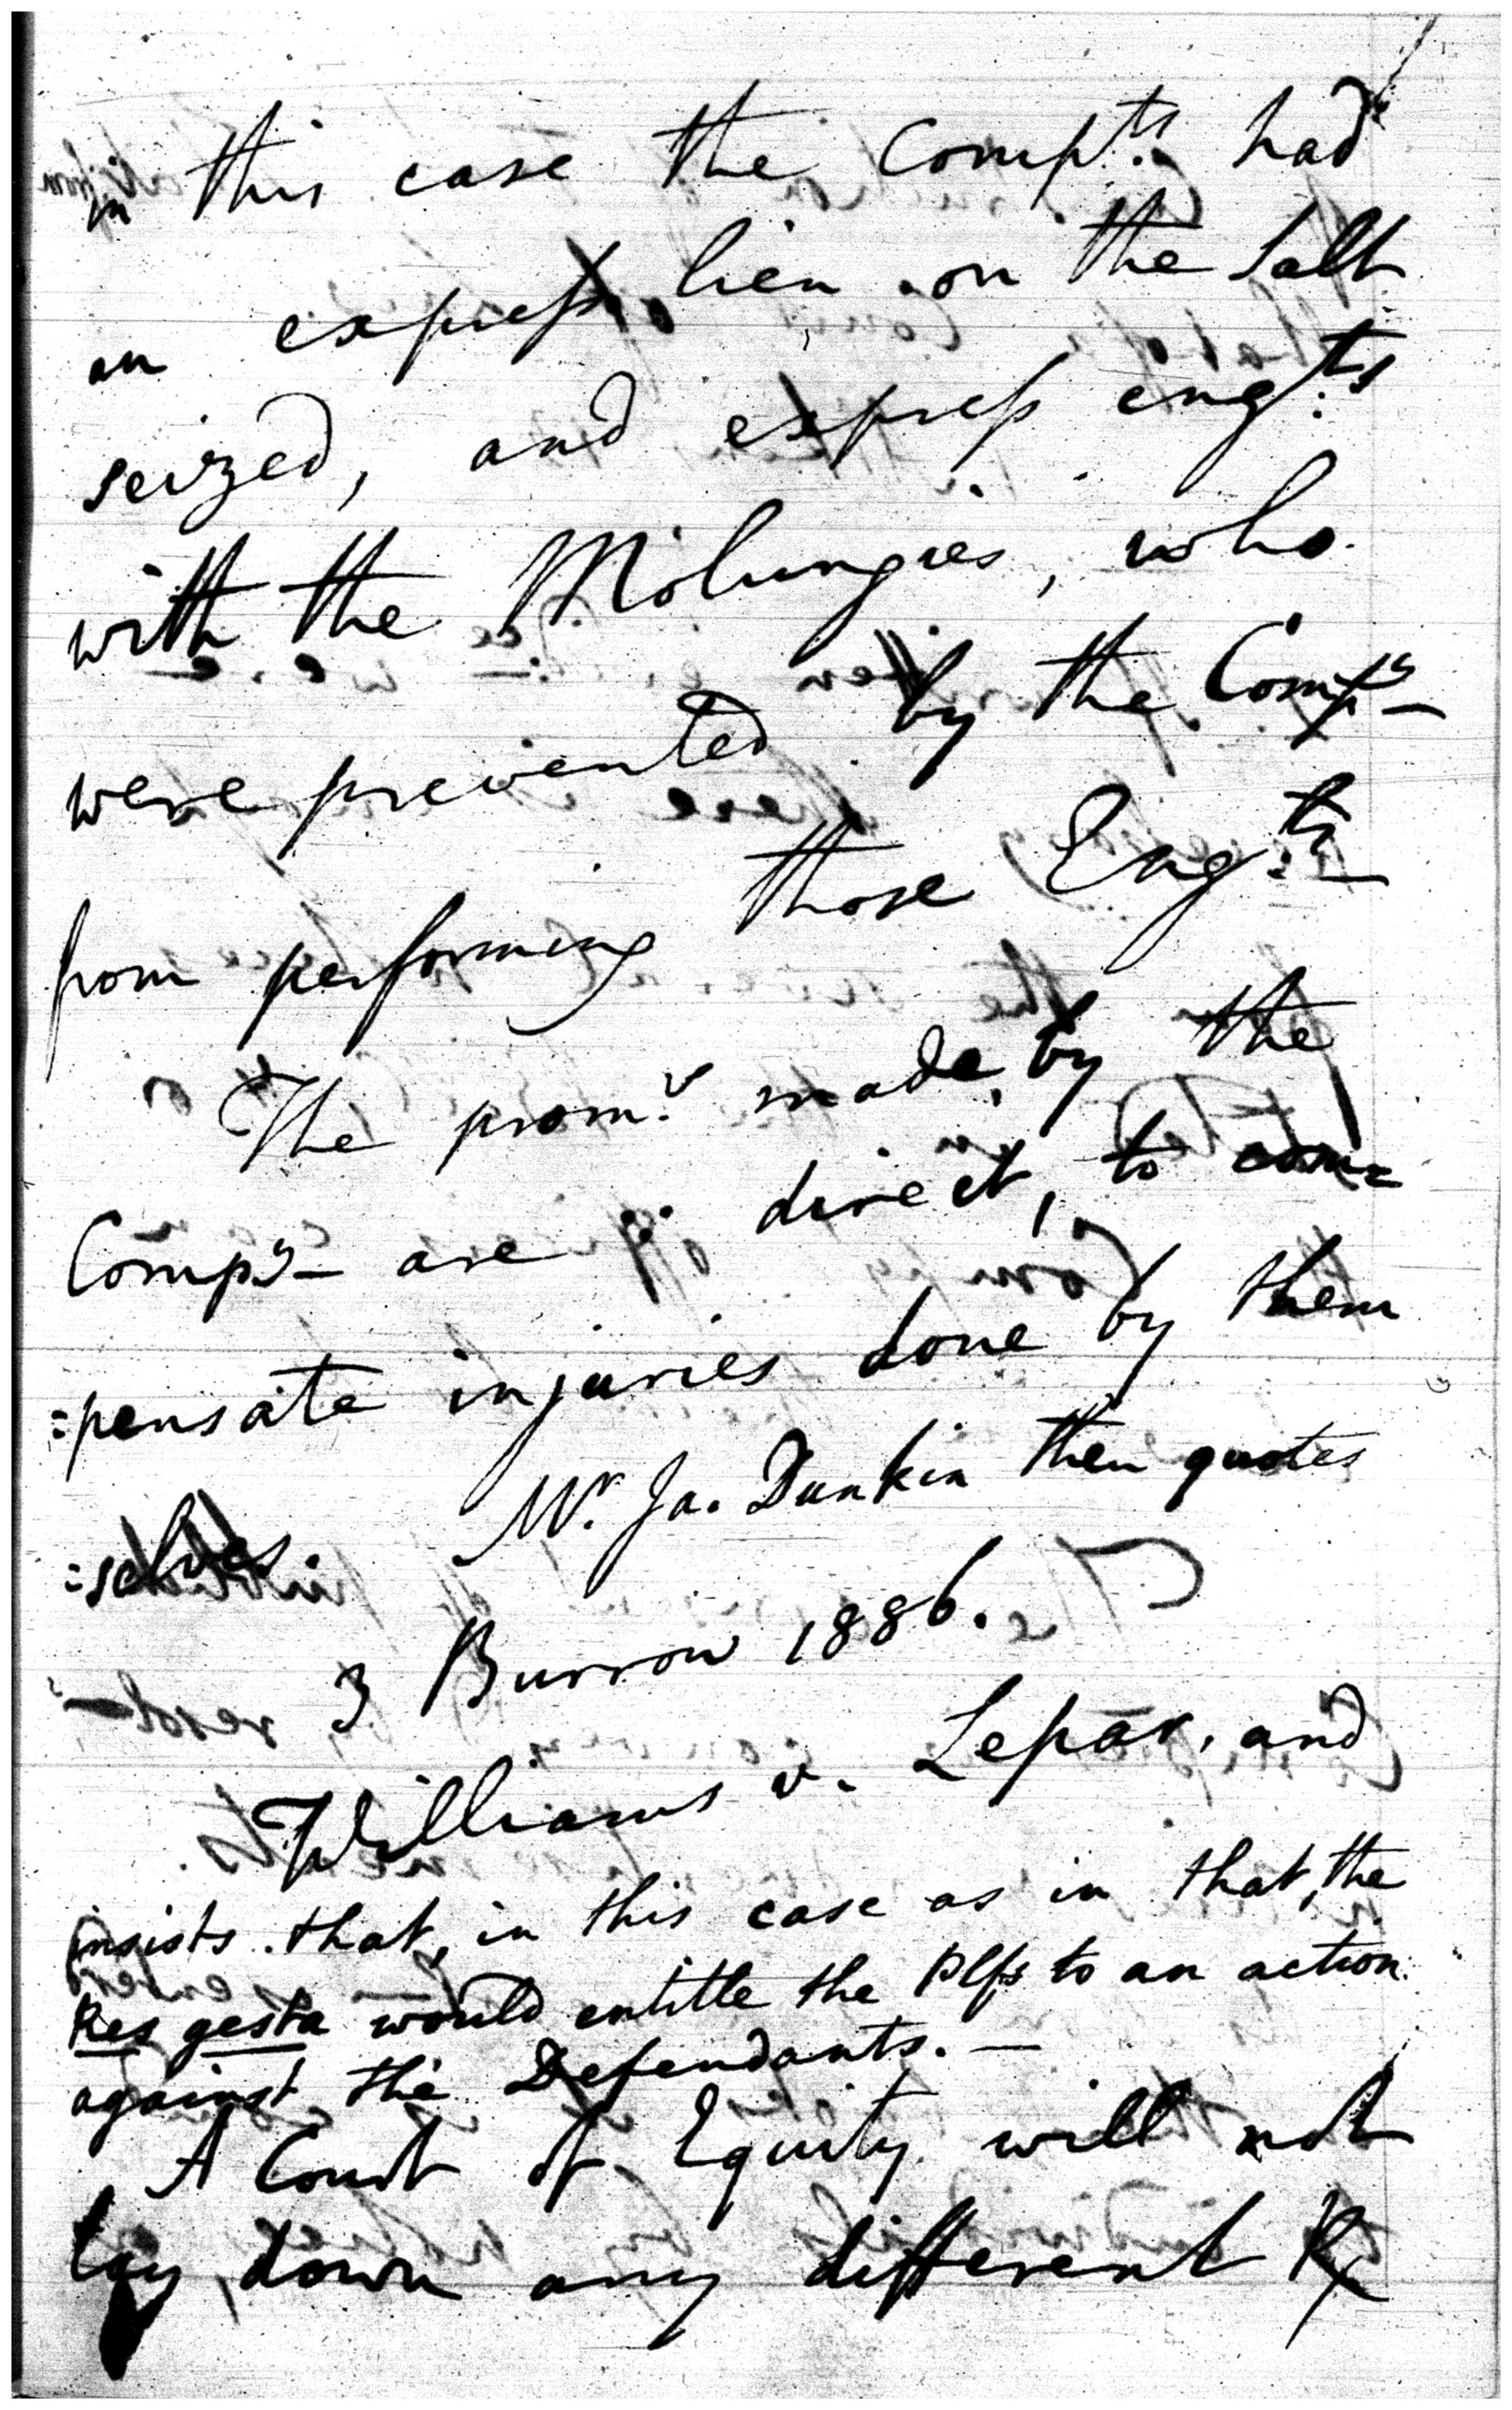 in this case the Compts. had
an express lien on the Salt
seized, and express engts.
with the Molungies, who
were prevented by the Compy
from performing those Engts.
The proms. made by the
Compy are direct, to com=
=pensate injuries done by them
=selves. Mr. Ja. Dunkin then quotes
3 Burrow 1886.
Williams v. Lepar, and
insists that, in this case as in that, the
Res gesta would entitle the Plfs to an action
against the Defendants. —
A Court of Equity will not
lay down any different R